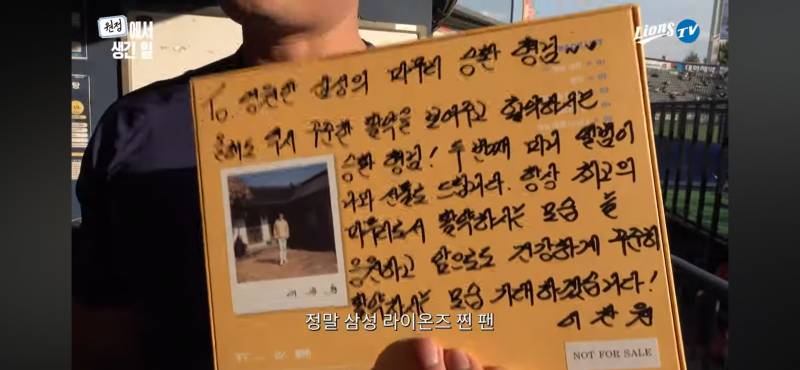 원정에서
생긴 일
Lions TV
To. 영원한 삼성의 마무리 승환 형님
올해도 역시 꾸준한 활약을 보여주고 활약하시는
승환 형님! 두번째 미니 앨범이
나와 선물로 드립니다. 항상 최고의
마무리로서 활약하시는 모습 늘
응원하고 앞으로도 건강하게 꾸준히
활약하시는 모습 기대하겠습니다!
이찬원
정말 삼성 라이온즈 찐 팬
NOT FOR SALE